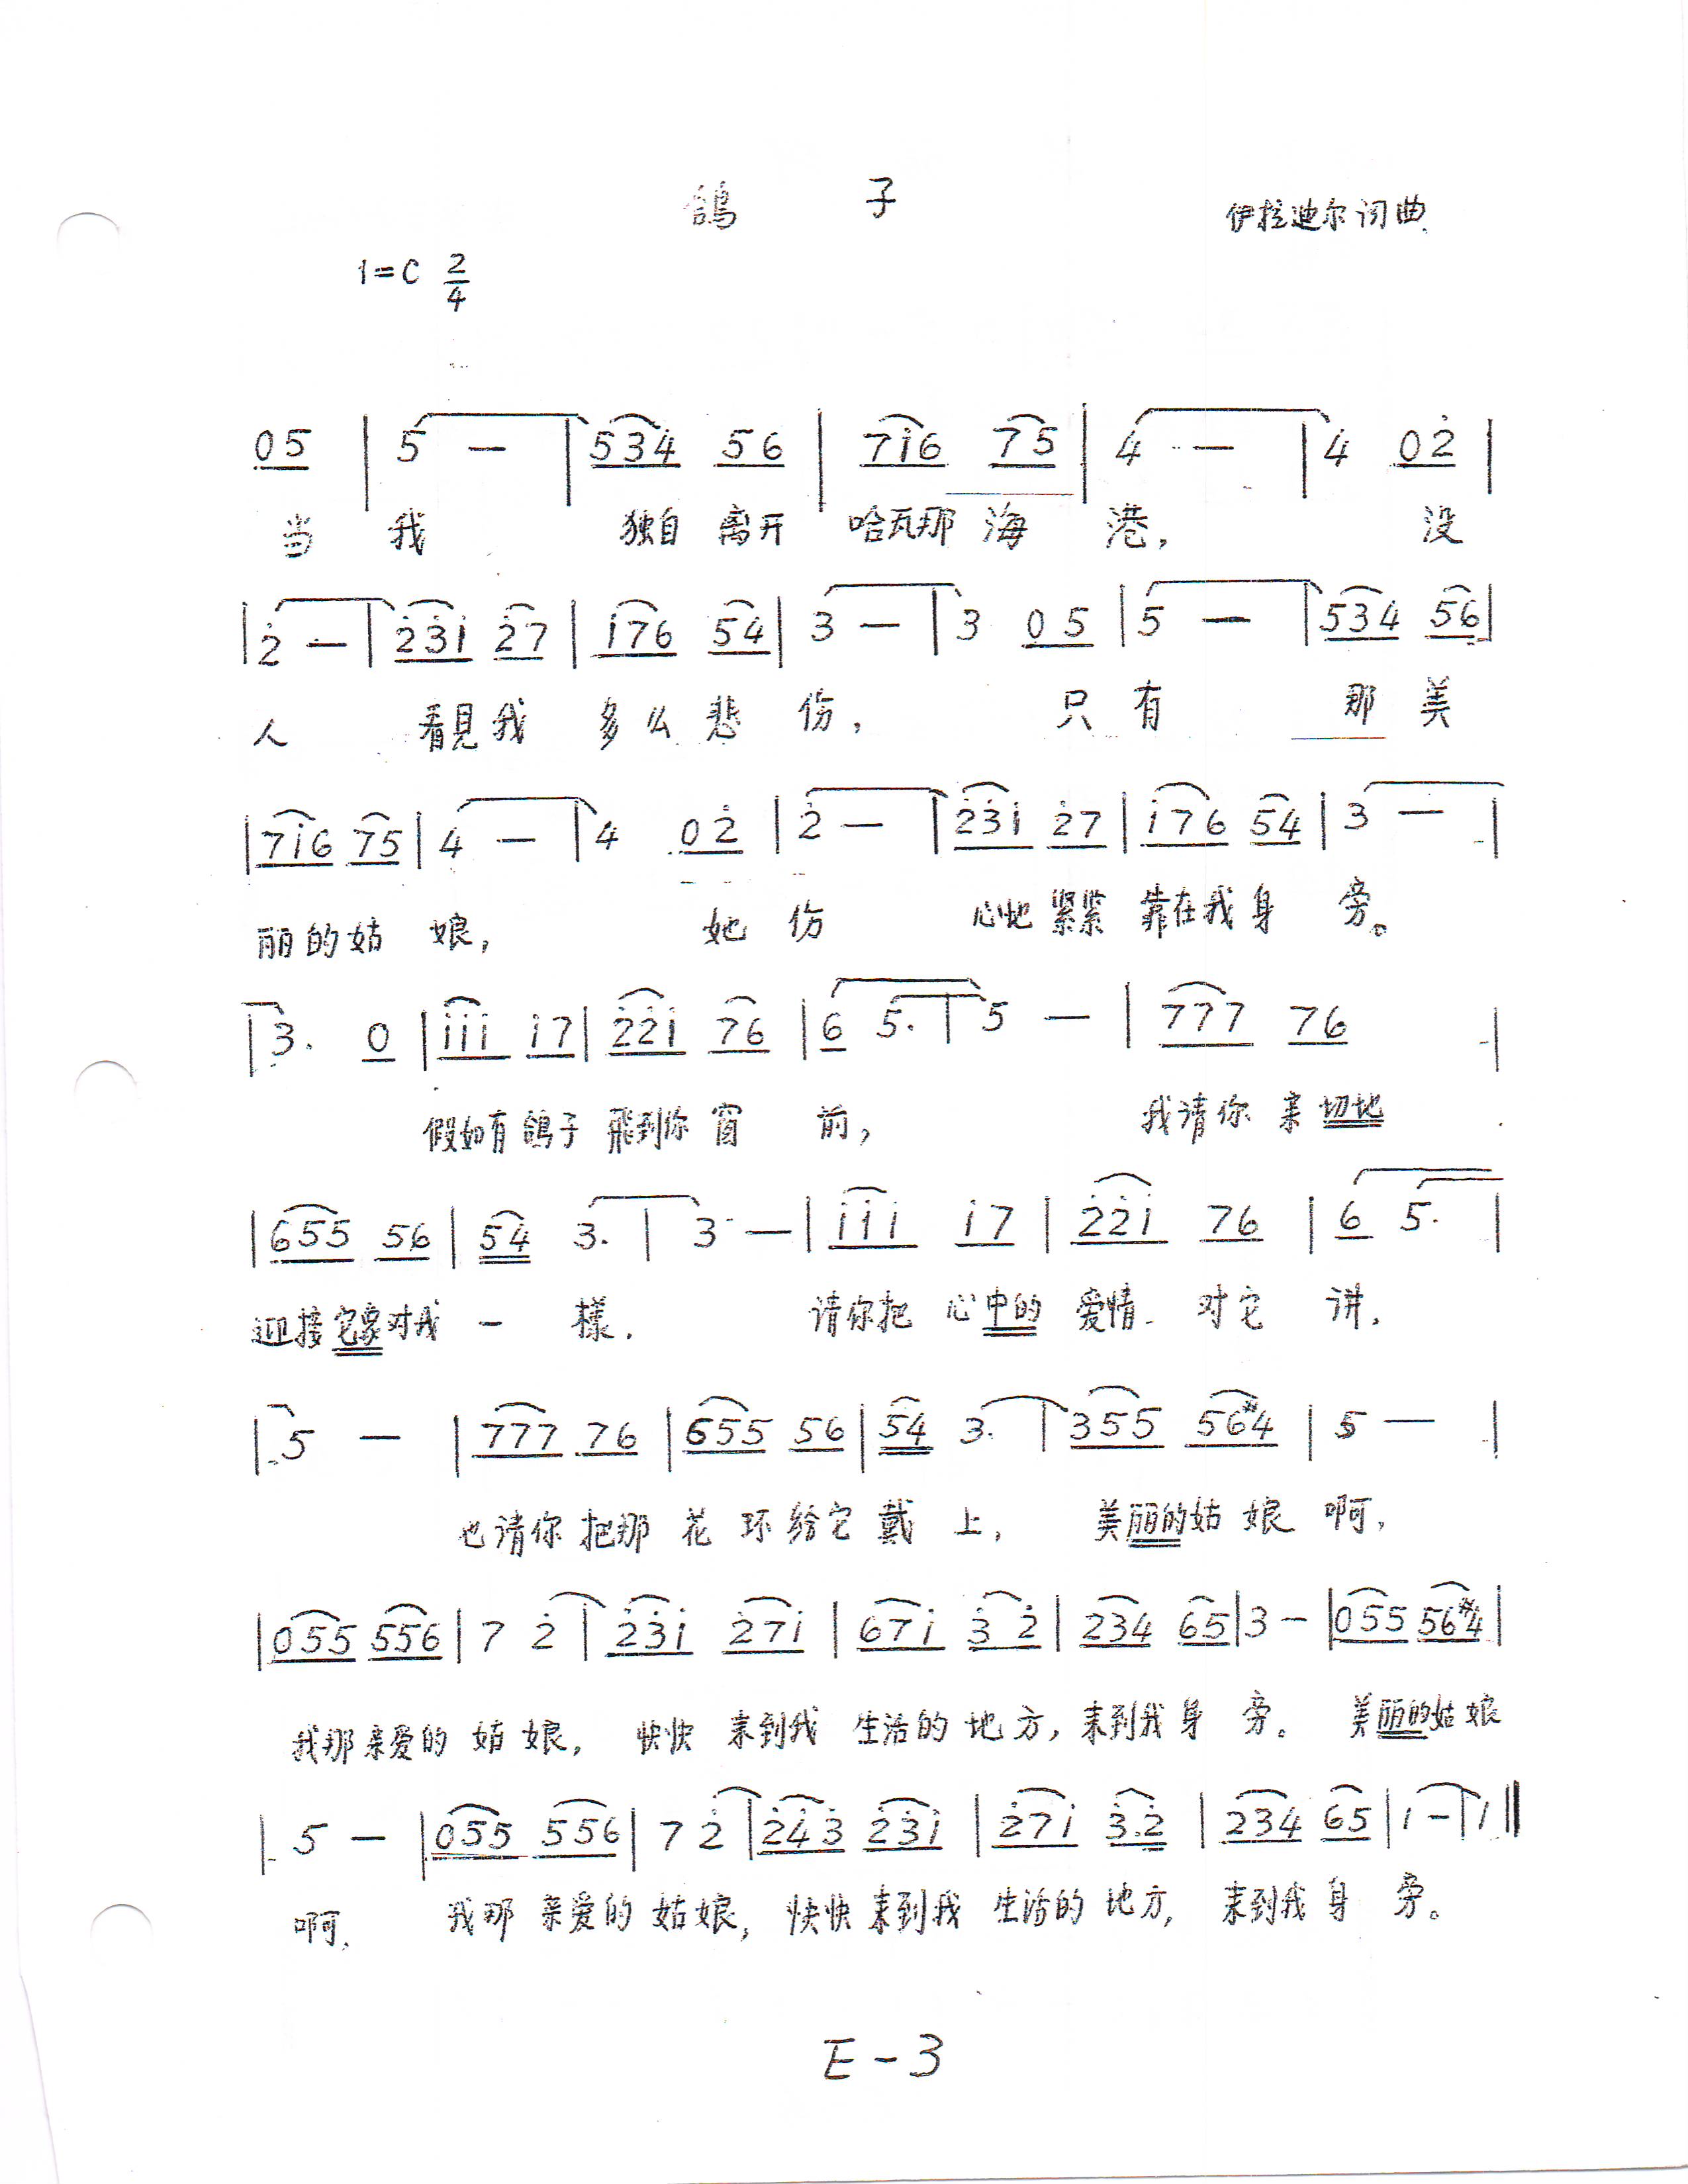 鴿 子
伊拉迪尔词曲
1=C 2/4
05 | 5 — | 534 56 | 7i6 75 | 4 — | 4 02̇ |
当 我 独自 离开 哈瓦那 海 港, 没
| 2̇ — | 2̇3̇i 2̇7 | i76 54 | 3 — | 3 05 | 5 — | 534 56 |
人 看見我 多么悲 伤, 只有 那 美
| 7i6 75 | 4 — | 4 02̇ | 2̇ — | 2̇3̇i 2̇7 | i76 54 | 3 — |
丽的姑 娘, 她 伤 心地 紧紧 靠在我身 旁。
| 3. 0 | iii i7 | 2̇2̇i 76 | 6 5. | 5 — | 777 76 |
假如有 鴿子 飛到你 窗 前, 我请你 亲切地
| 655 56 | 54 3. | 3 — | iii i7 | 2̇2̇i 76 | 6 5. |
迎接它象对我 一 樣. 请你把 心中的 爱情 对它 讲,
| 5 — | 777 76 | 655 56 | 54 3. | 355 56#4 | 5 — |
也请你 把那 花 环给它 戴 上, 美丽的姑 娘 啊,
| 055 556 | 7 2̇ | 2̇3̇i 2̇7i | 67i 3̇ 2̇ | 234 65 | 3 — | 055 56#4 |
我那亲爱的 姑 娘, 快快 来到我 生活的 地 方, 来到我身 旁。 美丽的姑娘
| 5 — | 055 556 | 7 2̇ | 2̇4̇3̇ 2̇3̇i | 2̇7i 3̇.2̇ | 234 65 | 1 — | 1 ‖
啊, 我那 亲爱的 姑娘, 快快来到我 生活的 地方, 来到我身 旁。
E-3